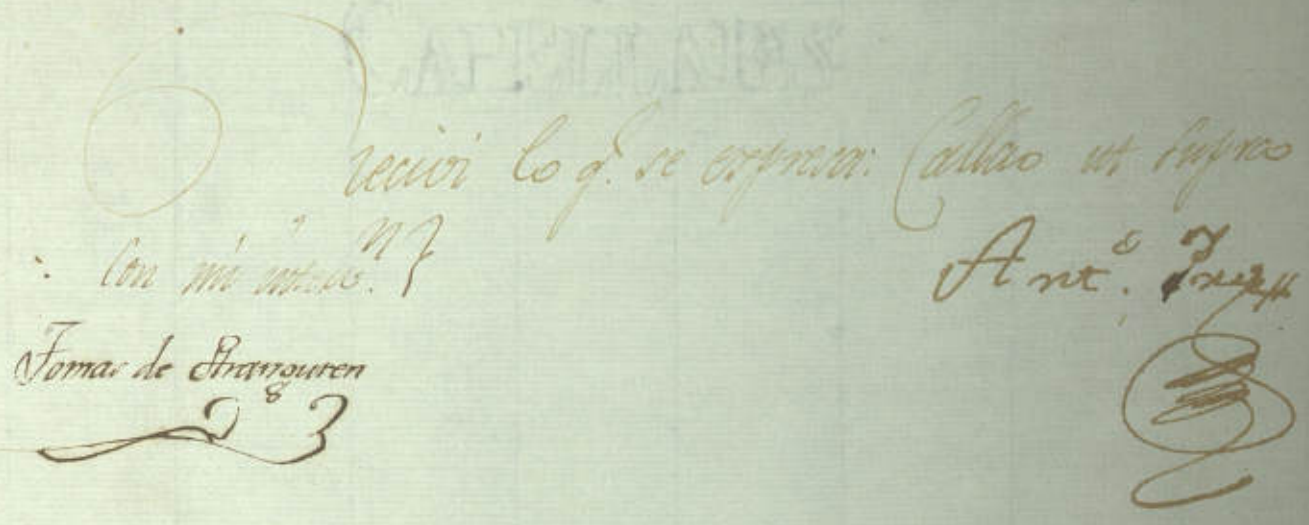 recivi lo q.e se expresa: Callao ut supra
Con mi interv.n
Ant.o
Tomas de Aranguren